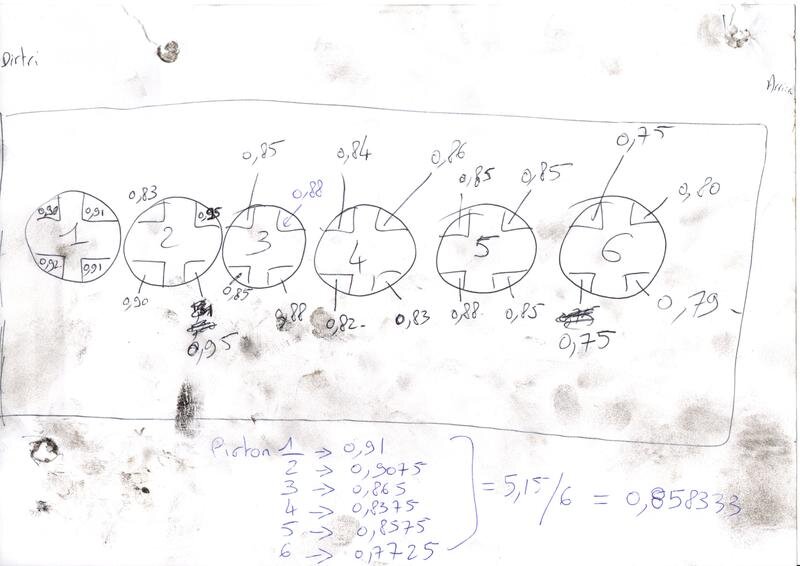 Distri
0,85 0,84 0,86 0,75
0,83 0,88 0,85 0,85 0,80
0,91 0,95
1 2 3 4 5 6
0,92 0,91
0,90 0,85 0,88 0,82 0,83 0,88 0,85 0,79
0,95 0,75
Piston 1 → 0,91
2 → 0,9075
3 → 0,865
4 → 0,8375
5 → 0,8575
6 → 0,7725
= 5,15/6 = 0,858333